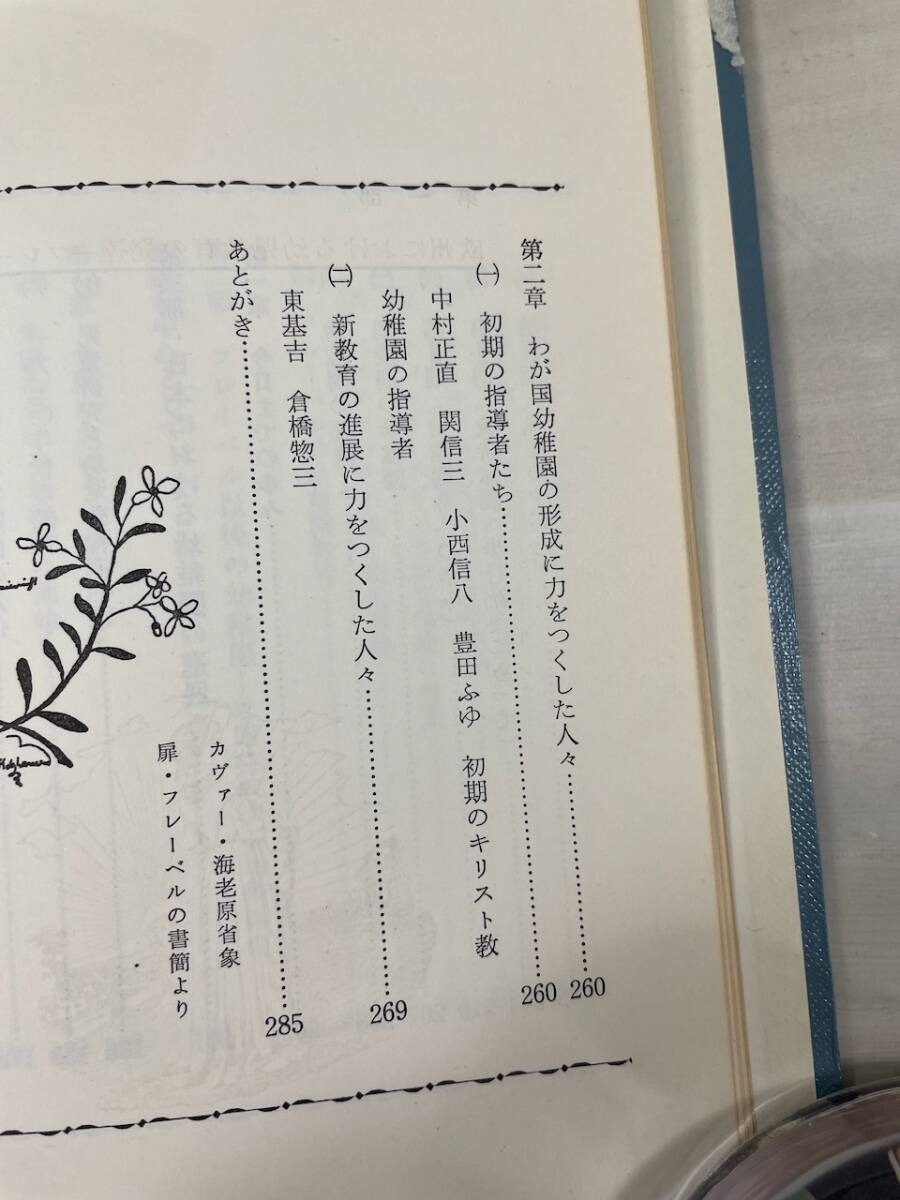 第二章　わが国幼稚園の形成に力をつくした人々……………260
㈠　初期の指導者たち……………260
中村正直　関信三　小西信八　豊田ふゆ　初期のキリスト教
幼稚園の指導者
㈡　新教育の進展に力をつくした人々……………269
東基吉　倉橋惣三
あとがき……………285
カヴァー・海老原省象
扉・フレーベルの書簡より